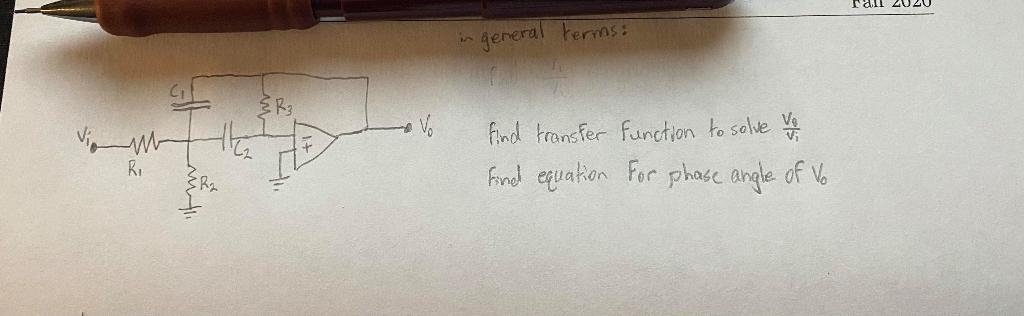 Fall 2020
in general terms:
C1
R3
Vi
C2
Vo
R1
R2
find transfer function to solve Vo/Vi
Find equation for phase angle of Vo